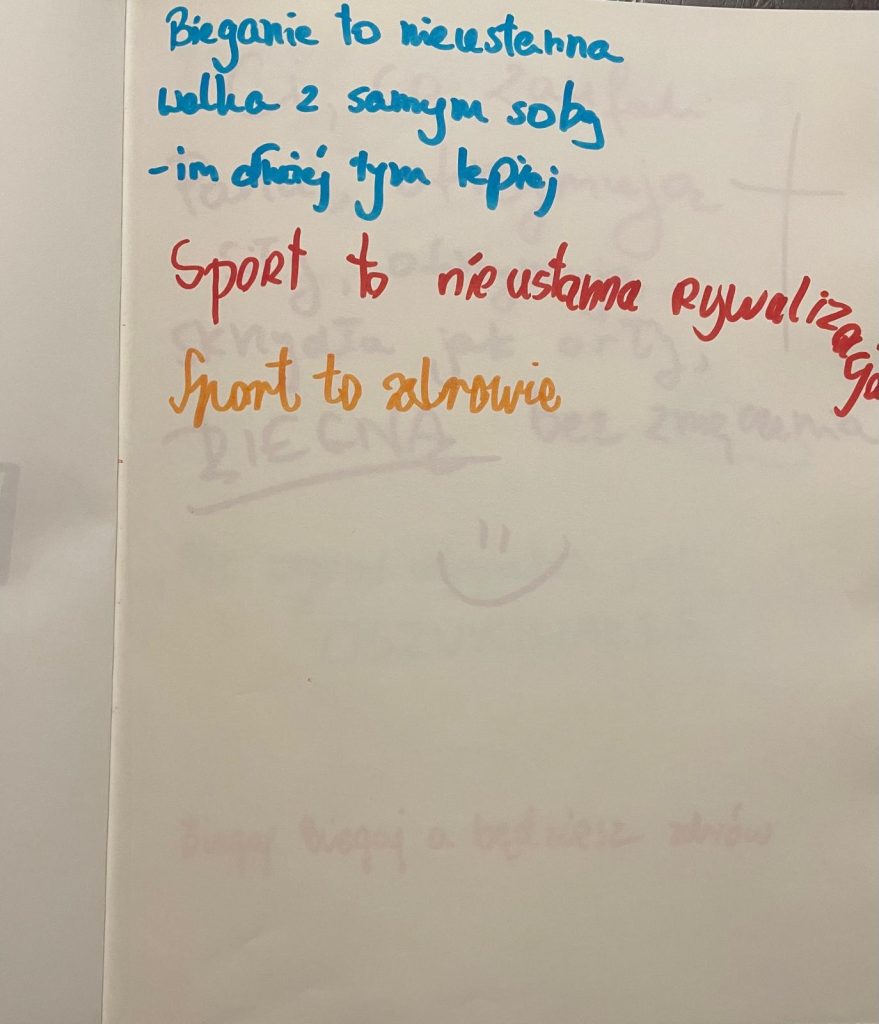 Bieganie to nieustanna
walka z samym sobą
-im dłużej tym lepiej
Sport to nieustanna Rywalizacja
Sport to zdrowie
BIEGNĄ bez zmęczenia
Biegaj Biegaj a będziesz zdrów